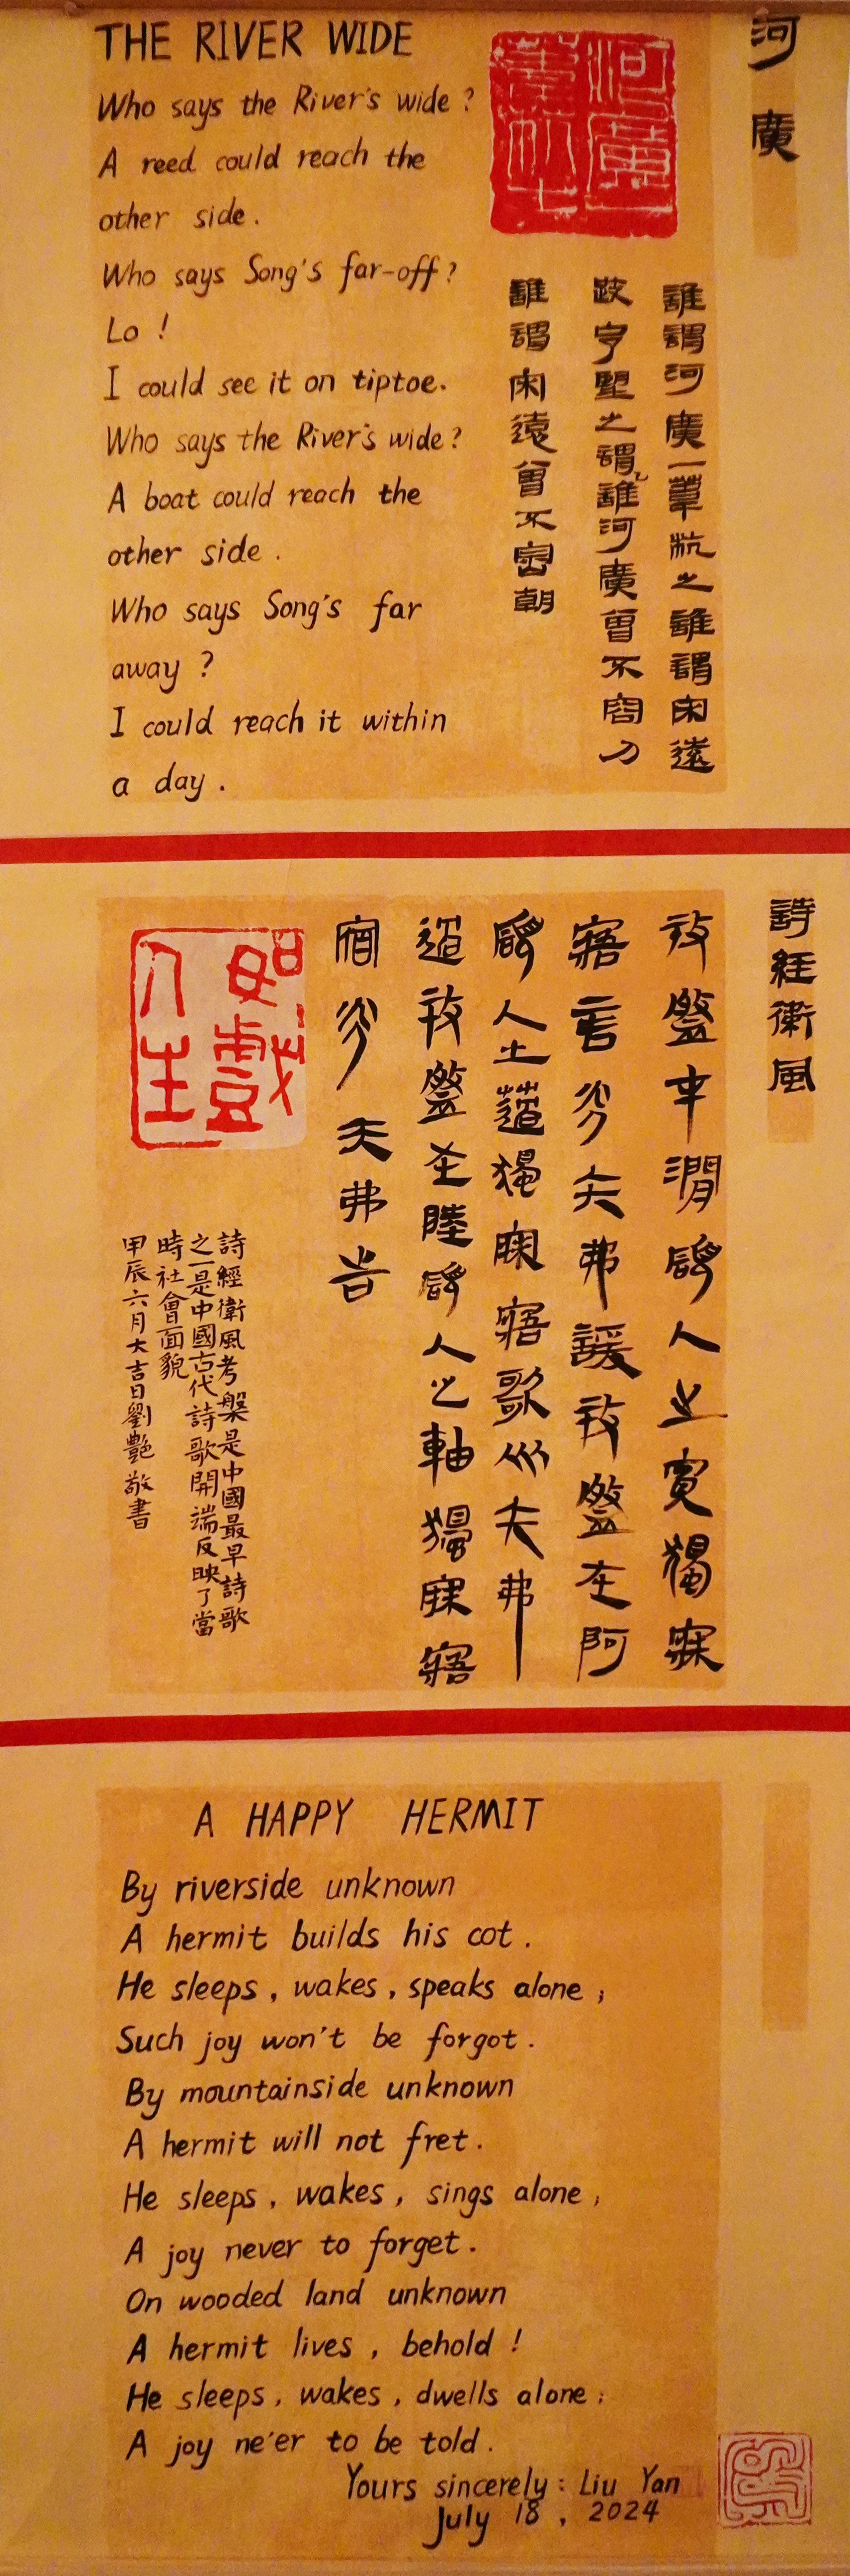 THE RIVER WIDE
Who says the River's wide?
A reed could reach the
other side.
Who says Song's far-off?
Lo!
I could see it on tiptoe.
Who says the River's wide?
A boat could reach the
other side.
Who says Song's far
away?
I could reach it within
a day.
河廣
河廣
誰謂河廣一葦杭之誰謂宋遠
跂予望之謂誰河廣曾不容刀
誰謂宋遠曾不崇朝
詩經衛風
考槃在澗碩人之寬獨寐
寤言永矢弗諼考槃在阿
碩人之薖獨寐寤歌永矢弗
過考槃在陸碩人之軸獨寐寤
宿永矢弗告
人生
詩經衛風考槃是中國最早詩歌
之一是中國古代詩歌開端反映了當
時社會面貌
甲辰六月大吉日劉艷敬書
A HAPPY HERMIT
By riverside unknown
A hermit builds his cot.
He sleeps, wakes, speaks alone;
Such joy won't be forgot.
By mountainside unknown
A hermit will not fret.
He sleeps, wakes, sings alone;
A joy never to forget.
On wooded land unknown
A hermit lives, behold!
He sleeps, wakes, dwells alone;
A joy ne'er to be told.
Yours sincerely: Liu Yan
July 18, 2024